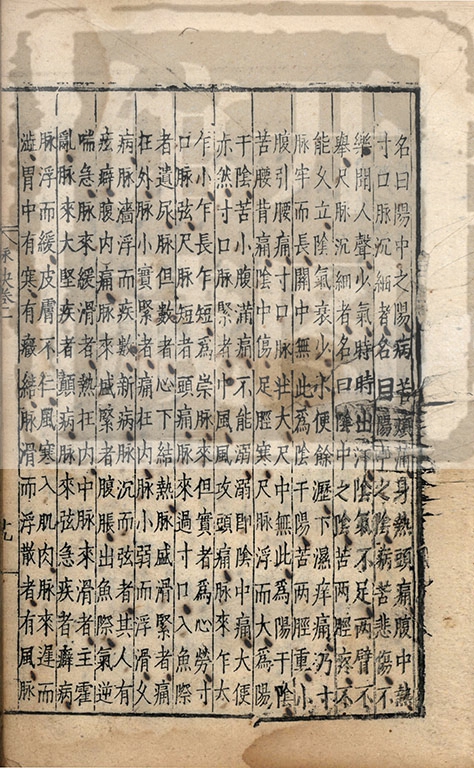 名曰陽中之陽病苦煩滿身熱頭痛腹中熱
寸口脉沉細者名曰陽中之陰病苦悲傷不
樂聞人聲少氣時時出汗陰氣不足兩臂不
舉尺脉沉細者名曰陰中之陰苦兩脛痠不
能久立陰氣衰少小便餘瀝下濕痒痛乃寸
脉牢而長關中無此爲陰干陽苦兩脛重小
腹引腰痛寸口脉半大尺中無此爲陽干陰
苦腰背痛陰中傷足脛寒尺脉浮而大爲陽
干陰苦小腹滿痛不能溺溺即陰中痛大便
亦然寸口脉緊者中風風攻頭痛脉來乍大
乍小乍長乍短爲祟脉來但實者爲心勞寸
口脉弦尺脉短者頭痛脉來過寸口入魚際
者遺尿脉但數者心下結熱脉盛滑緊者痛
在外脉小實緊者痛在内脉小弱而浮滑久
病脉濇浮而疾數新病脉沉而弦者其人有
痃癖腹内痛脉來盛緊者腹脹出魚際氣逆
喘急脉來緩滑者熱在内中脉來滑者主霍
亂脉來大堅疾者顛病脉來弦急疾者癖病
脉浮而緩皮膚不仁風寒入肌肉脉來遲而
澁胃中有寒有癥結脉滑而浮散者有風脉